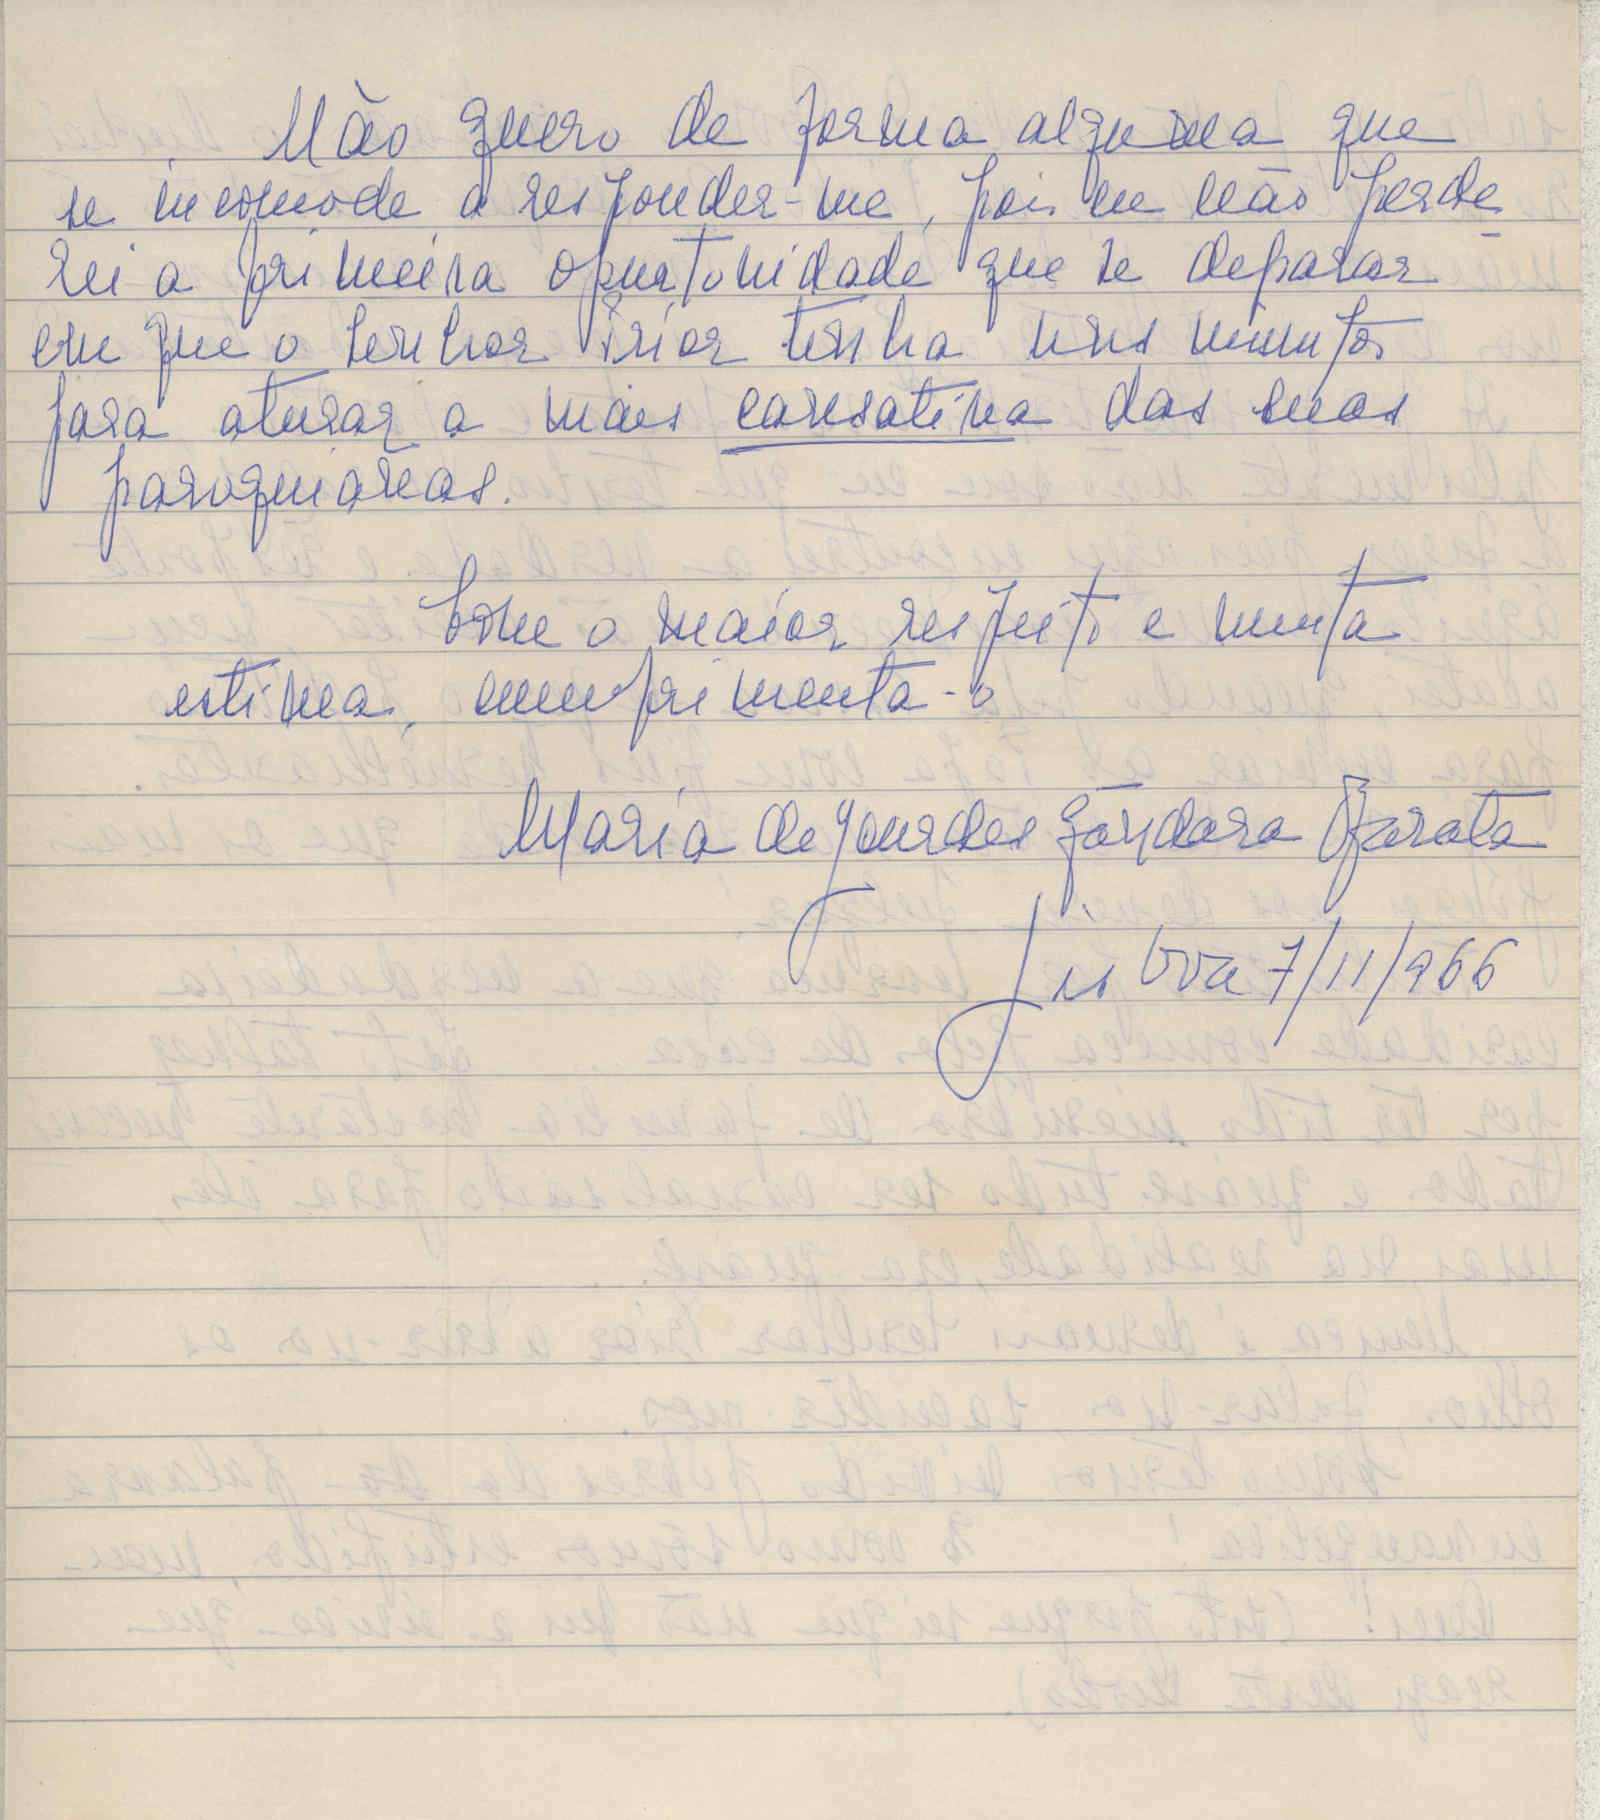 Não quero de forma alguma que
se incomode a responder-me, pois eu não perde
rei a primeira oportunidade que se deparar
em que o senhor Prior tenha uns minutos
para aturar a mais cansativa das suas
paroquianas.
Com o maior respeito e muita
estima, cumprimenta-o
Maria de Lourdes Gândara
Lisboa 7/11/966